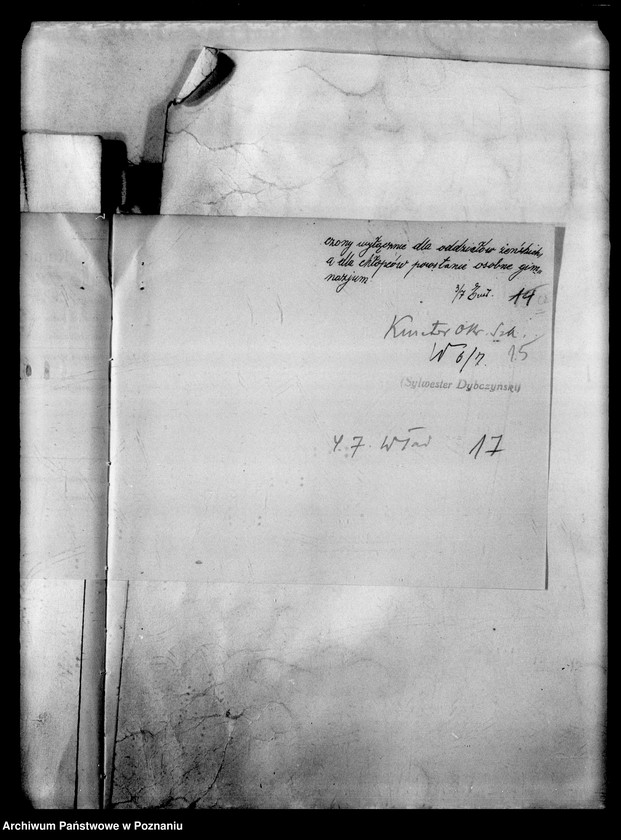 czony wyłącznie dla oddziałów żeńskich,
a dla chłopców powstanie osobne gim-
nazjum
3/7 14
Kurator Okr. Szk.
W 6/7. 15
(Sylwester Dybczyński)
4.7. 17
Archiwum Państwowe w Poznaniu